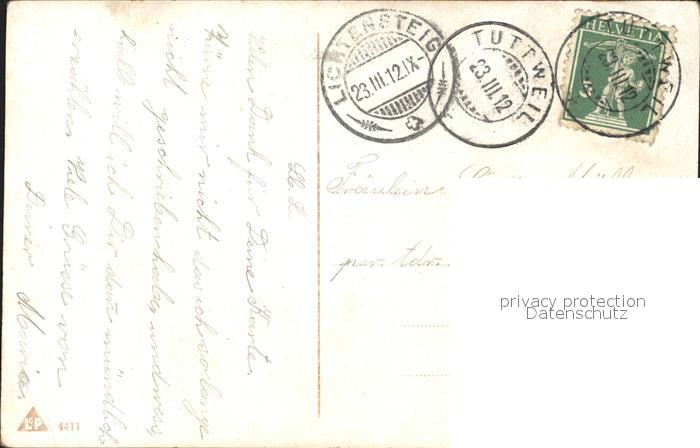 LICHTENSTEIG
23.III.12.IX-
TUTTWEIL
23.III.12
HELVETIA
TUTTWEIL
23.III.12
5
Lb. L.
Vielen Dank für Deine Karte.
Zürne mir nicht das ich so lange
nicht geschrieben habe, und wess
halb will ich Dir dann mündlich
erzählen. Viele Grüsse von
Deiner Maria.
Fräulein
per. Adr.
privacy protection
Datenschutz
L&P 4411